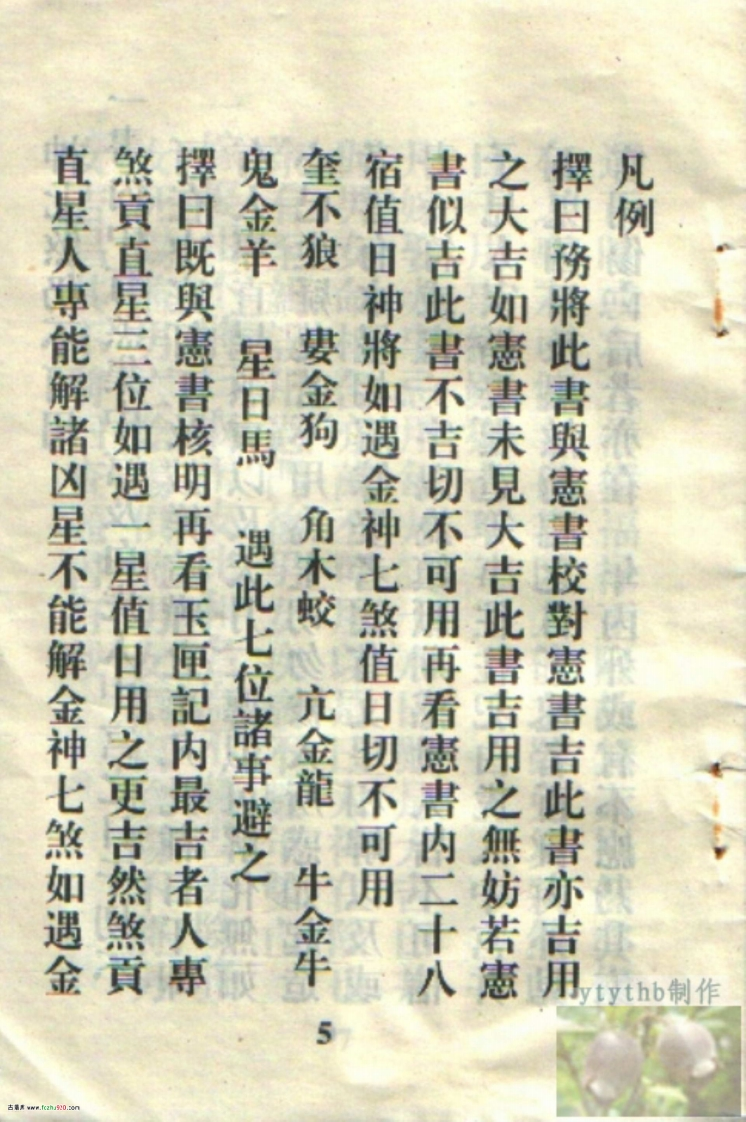 凡例
擇曰務將此書與憲書校對憲書吉此書亦吉用
之大吉如憲書未見大吉此書吉用之無妨若憲
書似吉此書不吉切不可用再看憲書内二十八
宿值日神將如遇金神七煞值日切不可用
奎不狼 婁金狗 角木蛟 亢金龍 牛金牛
鬼金羊 星日馬 遇此七位諸事避之
擇曰既與憲書核明再看玉匣記内最吉者人專
煞貢直星三位如遇一星值日用之更吉然煞貢
直星人專能解諸凶星不能解金神七煞如遇金
5
ytythb制作
www.fczhu920.com